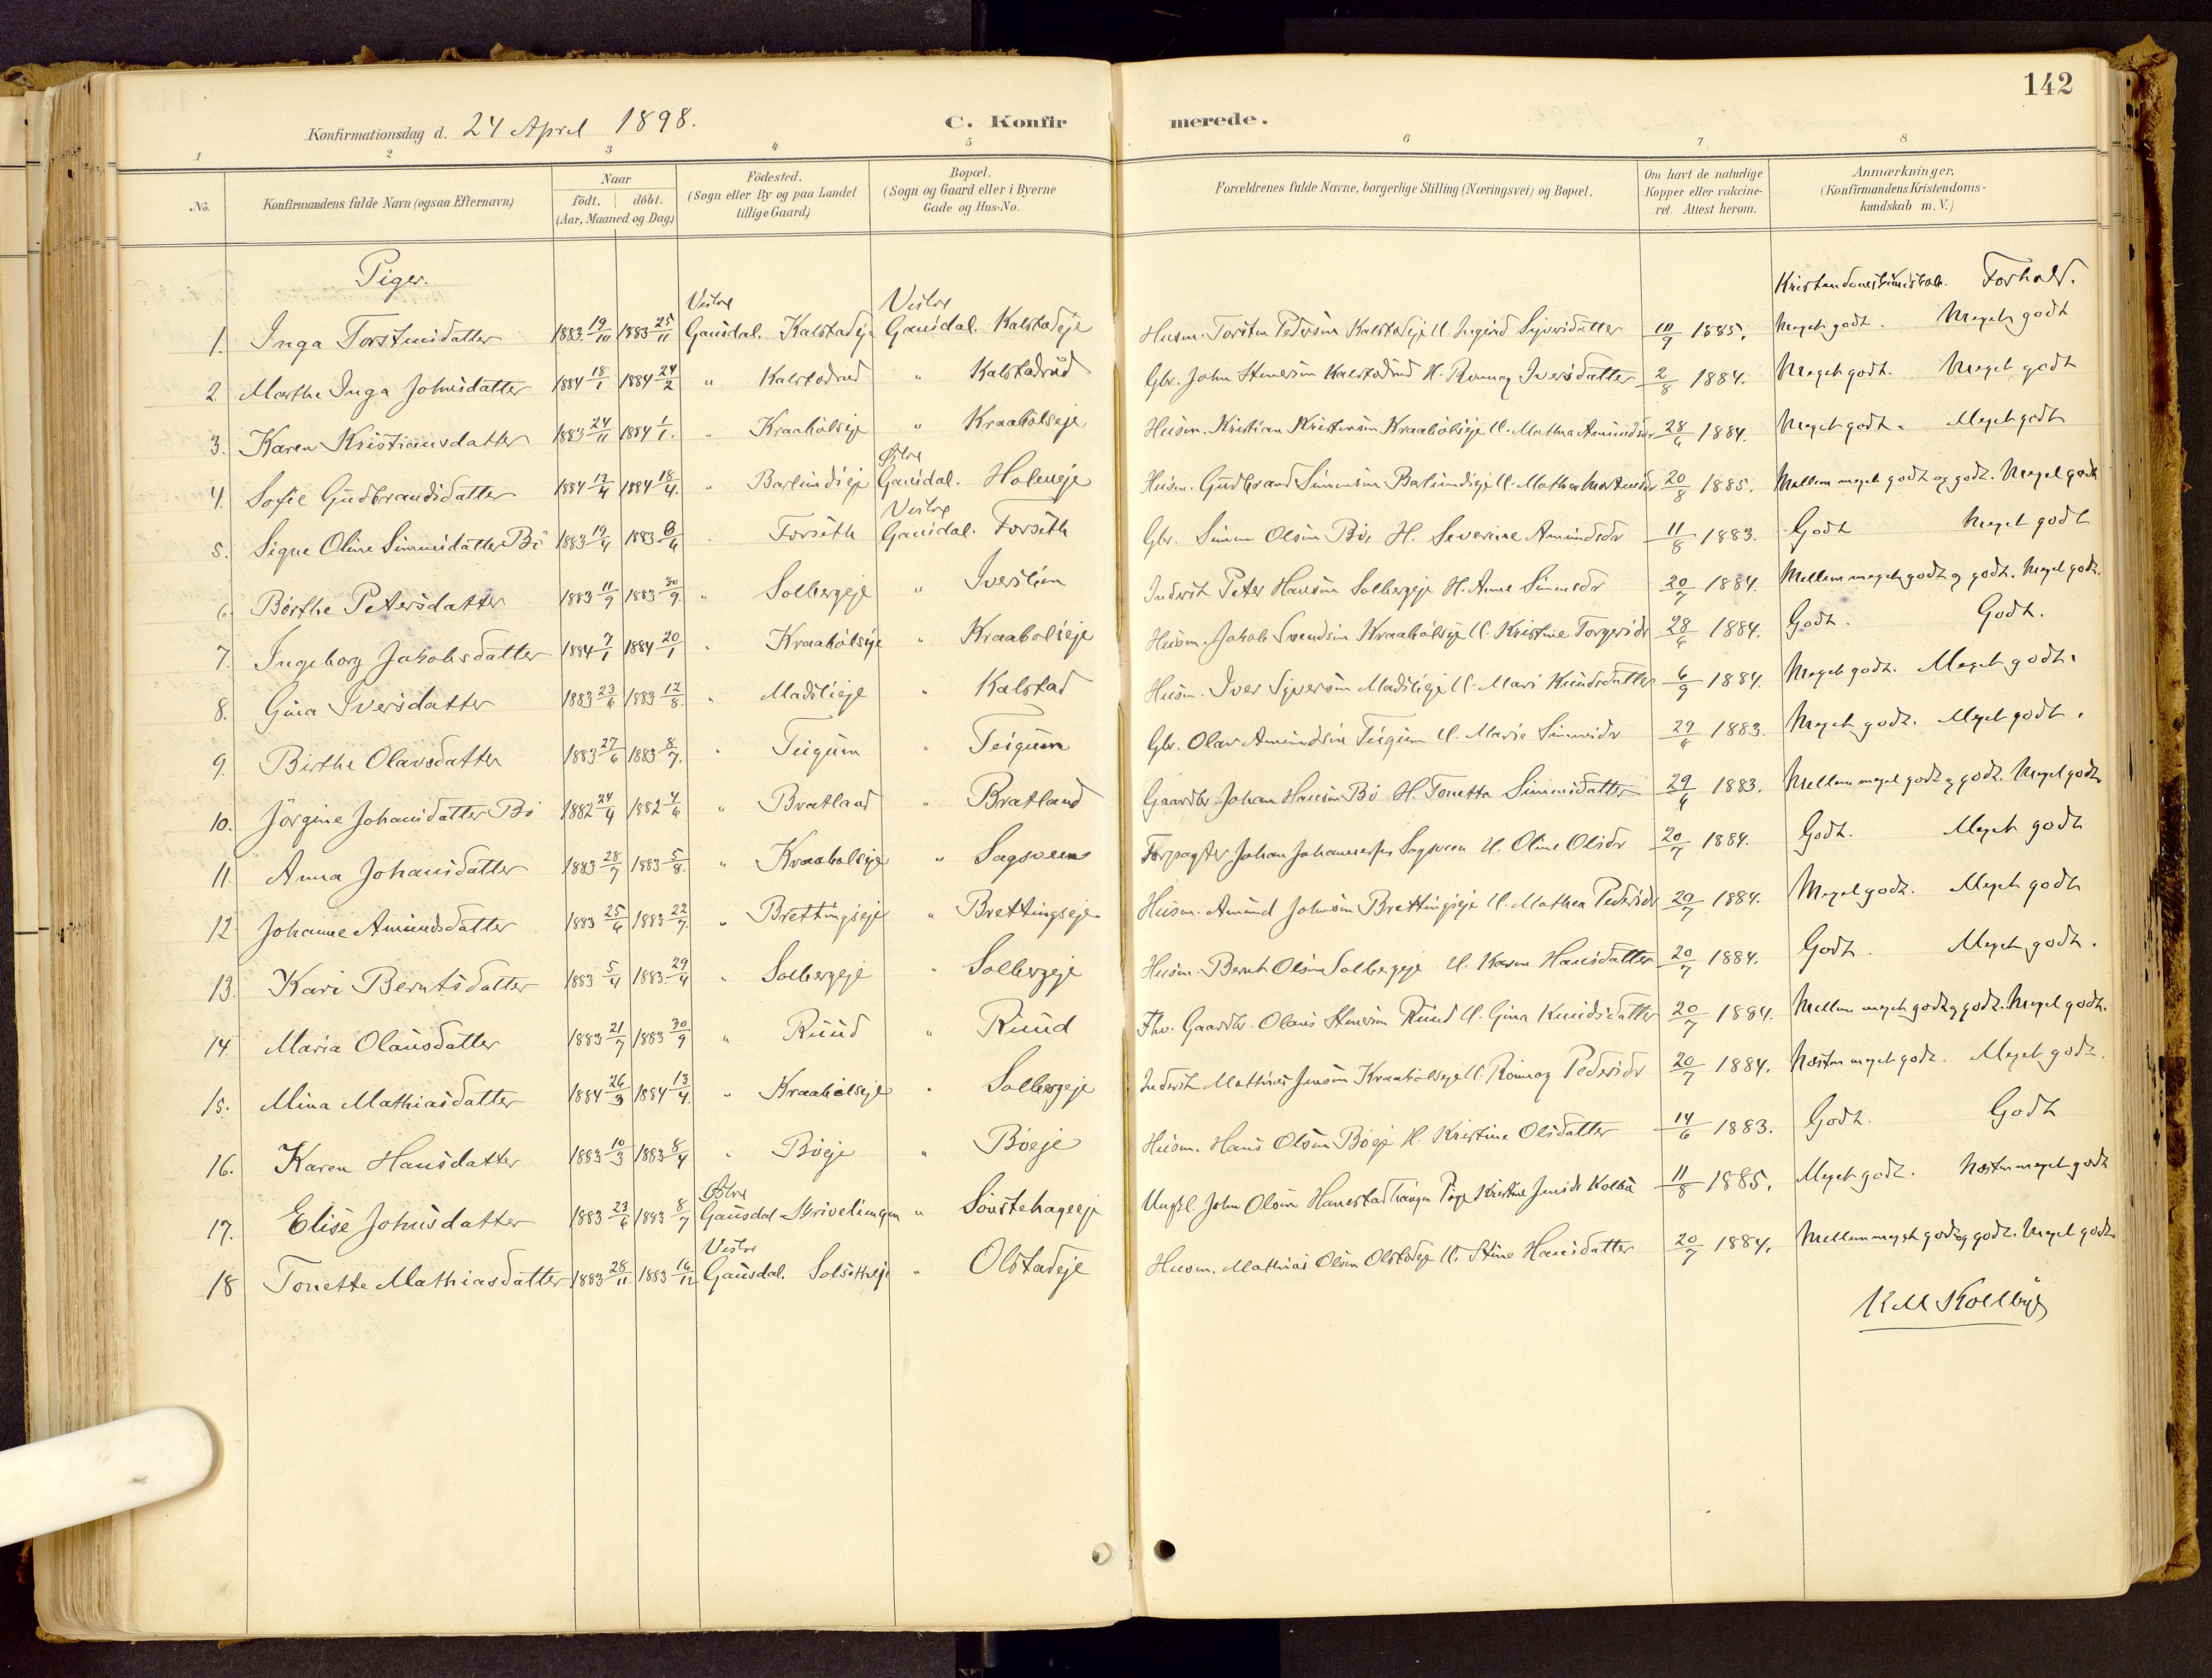 142
Konfirmationsdag d. 24 April 1898. C. Konfirmerede.
1 2 3 4 5 6 7 8
No. Konfirmandens fulde Navn (ogsaa Efternavn) Naar födt. döbt. (Aar, Maaned og Dag.) Födested. (Sogn eller By og paa Landet tillige Gaard.) Bopæl. (Sogn og Gaard eller i Byerne Gade og Hus-No. Forældrenes fulde Navne, borgerlige Stilling (Næringsvei) og Bopæl. Om havt de naturlige Kopper eller vakcineret. Attest herom. Anmærkninger. (Konfirmandens Kristendomskundskab m. V.)
Piger. Forhold.
1. Inga Torstensdatter 1883 19/10 1883 25/11 Vestre Gausdal. Kalstadeje Vestre Gausdal. Kalstadeje Husm. Torsten Pedersen Kalstadeje U. Ingrid Syversdatter 10/9 1885. Meget godt. Meget godt
2. Marthe Inga Johnsdatter 1884 18/1 1884 24/2 " Kalstadrud " Kalstadrud Gbr. John Stenersen Kalstadrud H. Ronnog Iversdatter 2/8 1884. Meget godt. Meget godt
3. Karen Kristiansdatter 1883 24/11 1884 1/1. " Kraabölseje " Kraabölseje Husm. Kristian Kristensen Kraabölseje U. Mathea Amundsdr 28/6 1884. Meget godt. Meget godt
4. Sofie Gudbrandsdatter 1884 12/4 1884 18/4. " Barlundeje Østre Gausdal. Holmeje Husm. Gudbrand Simensen Barlundeje U. Mathea 20/8 1885. Mellem meget godt og godt. Meget godt
5. Signe Oline Simensdatter Bö 1883 19/4 1883 8/6 " Forseth Vestre Gausdal. Forseth Gbr. Simen Olsen Bö, H. Severine Amundsdr 11/8 1883. Godt Meget godt
6. Börthe Petersdatter 1883 11/9 1883 30/9. " Solbergeje " Iverslien Inderst Peter Hansen Solbergeje H. Anne Simensdr 20/7 1884. Mellem meget godt og godt. Meget godt.
7. Ingeborg Jakobsdatter 1884 7/1 1884 20/1 " Kraabölseje " Kraabölseje Husm. Jakob Svendsen Kraabölseje U. Kristine Torgersdr 28/6 1884. Godt. Godt.
8. Gina Iversdatter 1883 23/6 1883 12/8. " Madslieje " Kalstad Husm. Iver Syversen Madslieje U. Mari Knudsdatter 6/9 1884. Meget godt. Meget godt.
9. Birthe Olavsdatter 1883 27/6 1883 8/7. " Teigum " Teigum Gbr. Olav Amundsen Teigum U. Marie Simensdr 29/6 1883. Meget godt. Meget godt.
10. Jörgine Johansdatter Bö 1882 24/4 1882 4/6 " Bratland " Bratland Gaardbr. Johan Hansen Bö H. Tonetta Simensdatter 29/6 1883. Mellem meget godt og godt. Meget godt
11. Anna Johansdatter 1883 28/7 1883 5/8. " Kraabölseje " Sagsveen Forpagter Johan Johannessen Sagsveen U. Oline Olsdr 20/7 1884. Godt. Meget godt
12. Johanne Amundsdatter 1883 25/6 1883 22/7. " Brettingseje " Brettingseje Husm. Amund Johnsen Brettingseje U. Mathea Pedersdr 20/7 1884. Meget godt. Meget godt
13. Kari Berntsdatter 1883 5/4 1883 29/4 " Solbergeje " Solbergeje Husm. Bernt Olsen Solbergeje U. Karen Hansdatter 20/7 1884. Godt. Meget godt.
14. Maria Olausdatter 1883 21/7 1883 30/9 " Ruud " Ruud Fhv. Gaardbr. Olaus Stenersen Ruud U. Gina Knudsdatter 20/7 1884. Mellem meget godt og godt. Meget godt.
15. Mina Mathiasdatter 1884 26/3 1884 13/4. " Kraabölseje " Solbergeje Inderst Mathias Jensen Kraabölseje U. Rönnog Pedersdr 20/7 1884. Næsten meget godt. Meget godt.
16. Karen Hansdatter 1883 10/3 1883 8/4 " Böeje " Böeje Husm. Hans Olsen Böeje U. Kristine Olsdatter 14/6 1883. Godt. Godt
17. Elise Johnsdatter 1883 23/6 1883 8/7 Østre Gausdal Skrivelingen " Söustehageeje Ungkl. John Olsen Pige Kristine Jensdr 11/8 1885. Meget godt. Næsten meget godt
18 Tonette Mathiasdatter 1883 28/11. 1883 16/12 Vestre Gausdal. " Olstadeje Husm. Mathias Olsen Olstadeje U. Stine Hansdatter 20/7 1884. Mellem meget godt og godt. Meget godt.